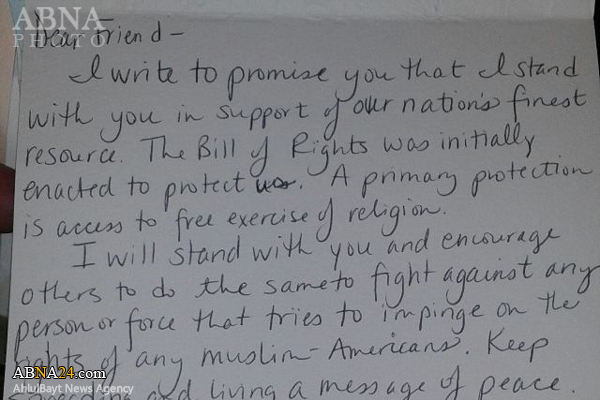 ABNA
PHOTO
Dear Friend -
I write to promise you that I stand
with you in support of our nation's finest
resource. The Bill of Rights was initially
enacted to protect us. A primary protection
is access to free exercise of religion.
I will stand with you and encourage
others to do the same to fight against any
person or force that tries to impinge on the
rights of any muslim-Americans. Keep
and living a message of peace.
ABNA24.com
AhlulBayt News Agency